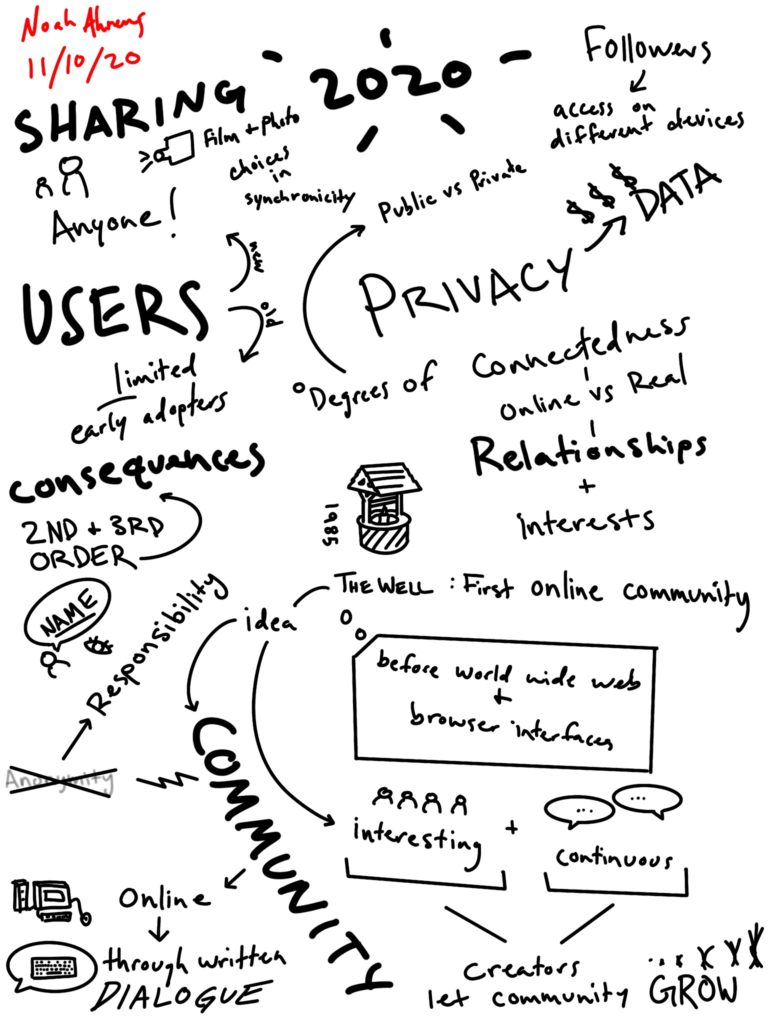 Noah Ahrens
11/10/20
SHARING 2020
Followers
access on
different devices
Film + Photo
choices
in
synchronicity
Anyone!
Public vs Private
$$$
DATA
PRIVACY
new
USERS
old
limited
early adopters
Degrees of Connectedness
Online vs Real
Relationships
+
interests
consequences
2ND + 3RD
ORDER
1985
THE WELL : First online community
idea
before world wide web
+
browser interfaces
NAME
Responsibility
Anonymity
COMMUNITY
interesting
+
...
...
continuous
Online
through written
DIALOGUE
Creators
let community GROW